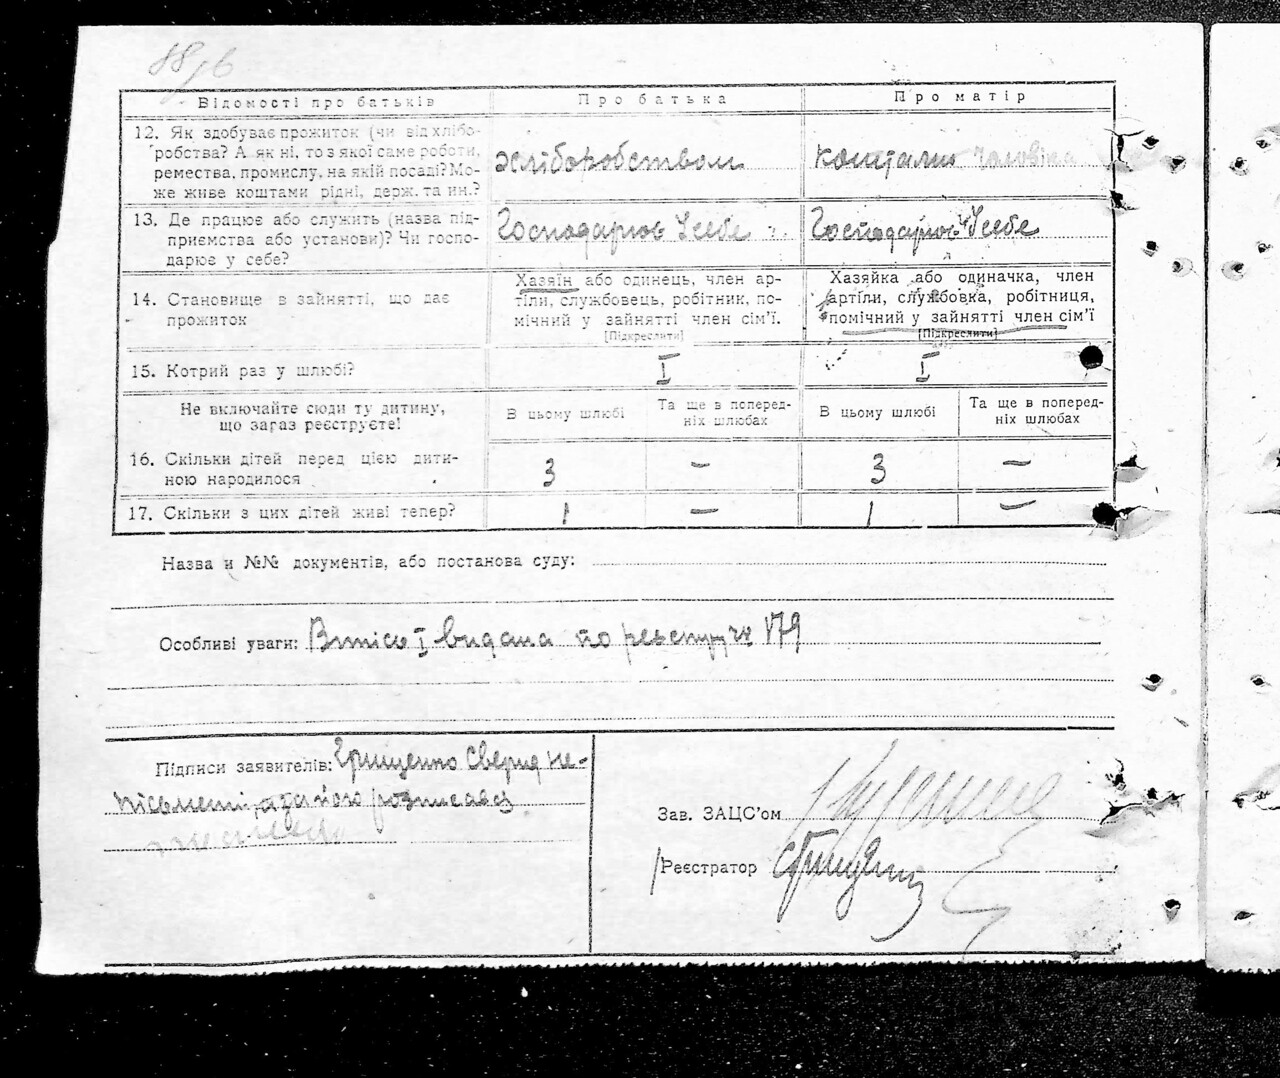 88/б
Відомості про батьків Про батька Про матір
12. Як здобуває прожиток (чи від хлібо-
робства? А як ні, то з якої саме роботи,
ремества, промислу, на якій посаді? Мо-
же живе коштами рідні, держ. та ин.?
хліборобством коштами чоловіка
13. Де працює або служить (назва під-
приємства або установи)? Чи госпо-
дарює у себе?
Господарює У себе Господарює У себе
14. Становище в занятті, що дає
прожиток
Хазяїн або одинець, член ар-
тіли, службовець, робітник, по-
мічний у зайнятті член сім'ї.
[Підкреслити]
Хазяйка або одиначка, член
артіли, службовка, робітниця,
помічний у зайнятті член сім'ї
[Підкреслити]
15. Котрий раз у шлюбі? I I
Не включайте сюди ту дитину,
що зараз реєструєте!
В цьому шлюбі Та ще в поперед-
ніх шлюбах В цьому шлюбі Та ще в поперед-
ніх шлюбах
16. Скільки дітей перед цією дити-
ною народилося 3 — 3 —
17. Скільки з цих дітей живі тепер? 1 — 1 —
Назва и №№ документів, або постанова суду:
Особливі уваги: Витісь I видана по реєстру № 179
Підписи заявителів: Грищенко Сверид не-
письмені, а за його розписався
Зав. ЗАЦС'ом
Реєстратор